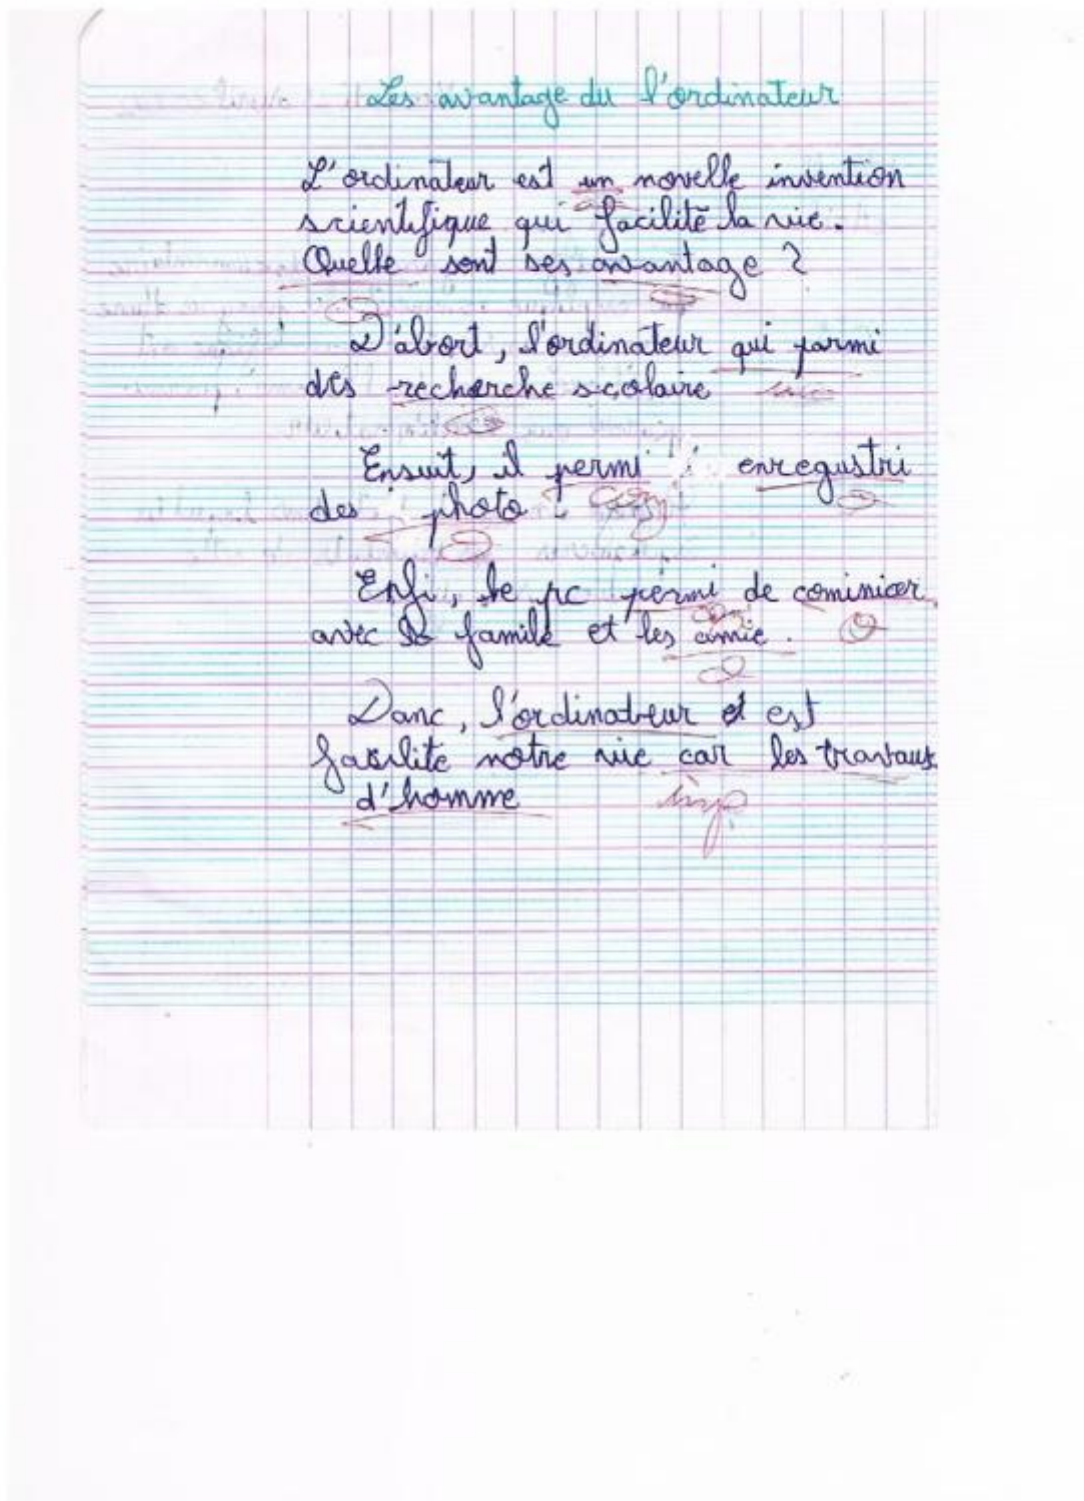 Les avantage du l'ordinateur
L'ordinateur est un novelle invention
scientifique qui facilite la vie.
Quelle sont ses avantage ?
D'abort, l'ordinateur qui parmi
des recherche scolaire
Ensuit, il permi enregustri
des photo.
Enfi, le pc permi de cominicer
avec famile et les amie.
Danc, l'ordinateur est
facilite notre vie car les travaux
d'homme